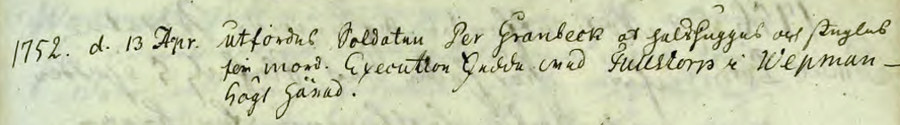 1752. d. 13 Apr. utfördes Soldaten Per Granbeck at halshuggas och steglas
för mord. Execution skedde wed Fullstorps i Wepman-
högs härad.